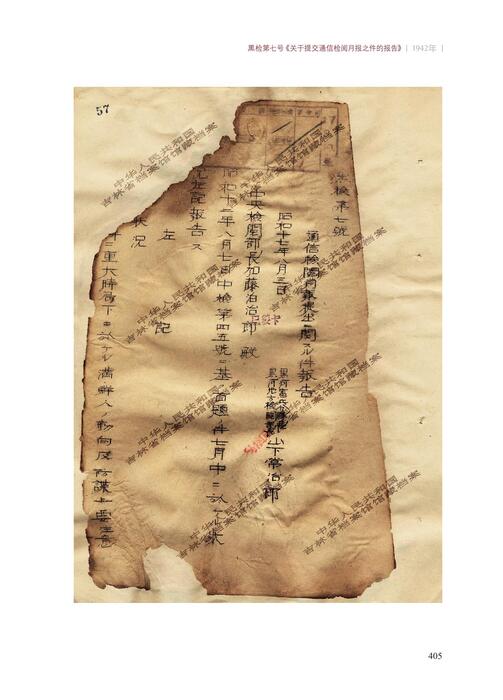 黑检第七号《关于提交通信检阅月报之件的报告》 | 1942年 |
57
检第七號
通信檢閲月報提出ニ関スル件報告
昭和十七年八月三日
山下常治郎
中央檢閲部長加藤泊治郎殿
昭和十二年八月七日中檢第四五號ニ基ク首題ノ件七月中ニ於ケル状
況左記報告ス
左記
状況
十二重大時局下ニ於ケル満鮮人ノ動向及防諜上要注意
中华人民共和国
吉林省档案馆馆藏档案
中华人民共和国
吉林省档案馆馆藏档案
中华人民共和国
吉林省档案馆馆藏档案
中华人民共和国
吉林省档案馆馆藏档案
中华人民共和国
吉林省档案馆馆藏档案
405